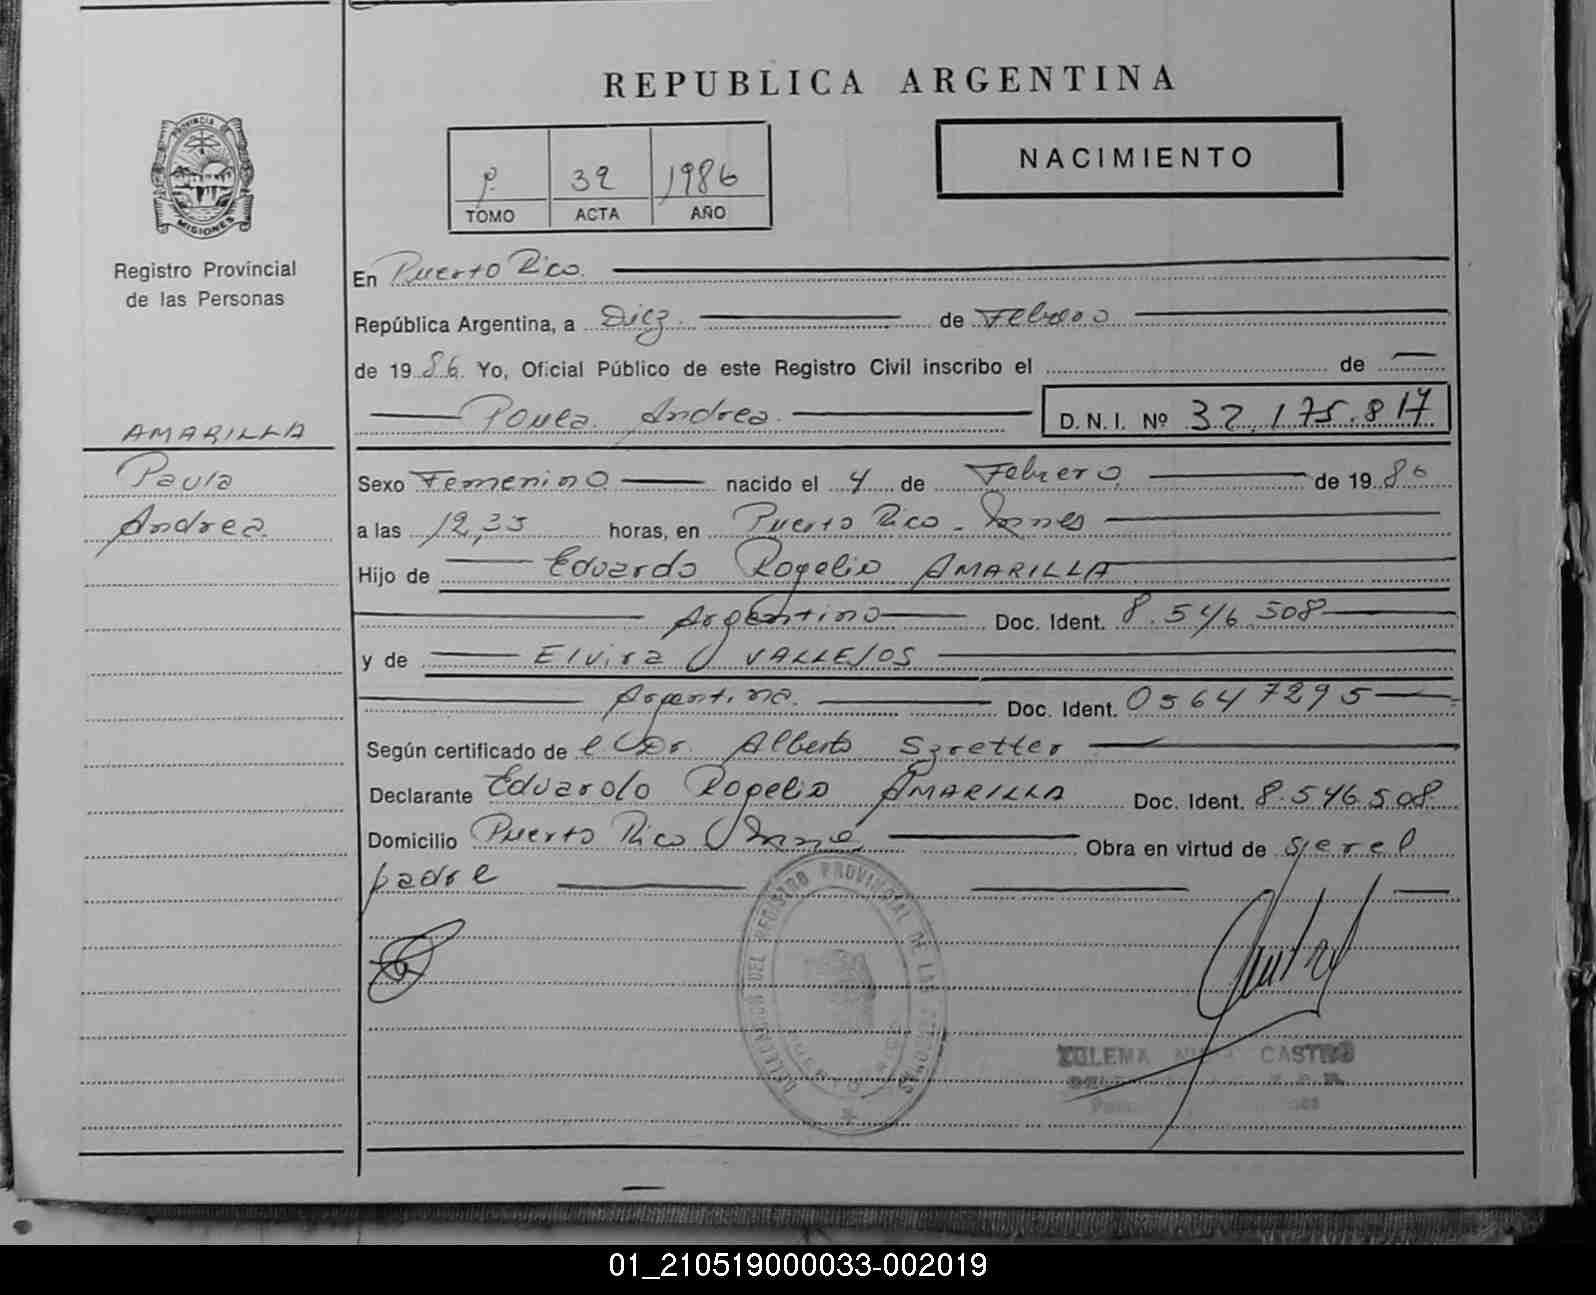 REPUBLICA ARGENTINA
PROVINCIA DE
MISIONES
Registro Provincial
de las Personas
39 1986
TOMO ACTA AÑO
NACIMIENTO
En Puerto Rico.
República Argentina, a Diez de Febrero
de 1986. Yo, Oficial Público de este Registro Civil inscribo el de
Paula Andrea. D.N.I. Nº 32.175.817
AMARILLA
Paula
Andrea.
Sexo Femenino nacido el 4 de Febrero de 1986
a las 12,35 horas, en Puerto Rico - Mnes
Hijo de Eduardo Rogelio AMARILLA
Argentino Doc. Ident. 8.546.508
y de Elvira VALLEJOS
Argentina. Doc. Ident. 05647295
Según certificado de el Dr. Alberto Szretter
Declarante Eduardo Rogelio AMARILLA Doc. Ident. 8.546.508
Domicilio Puerto Rico Mnes Obra en virtud de ser el
padre
DELEGACION DEL REGISTRO PROVINCIAL DE LAS PERSONAS
CASTRO
01_210519000033-002019